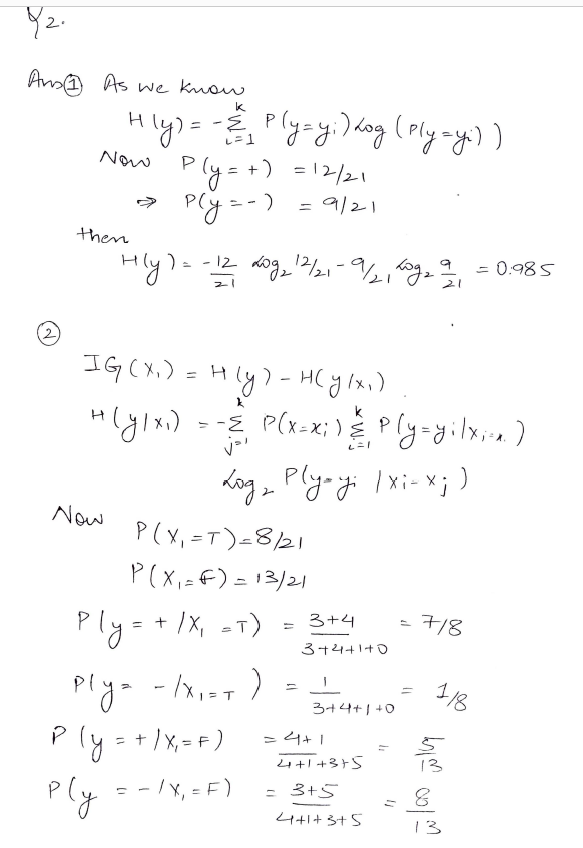 Y2.
Ans ① As we know
H(y) = -Σ_{i=1}^{k} P(y=yi) log (P(y=yi))
Now P(y=+) = 12/21
⇒ P(y=-) = 9/21
then
H(y) = -12/21 log₂ 12/21 - 9/21 log₂ 9/21 = 0.985
②
IG(X₁) = H(y) - H(y/x₁)
H(y|x₁) = -Σ_{j=1}^{k} P(x=xj) Σ_{i=1}^{k} P(y=yi|xi=x.)
log₂ P(y=yi /xi=xj)
Now
P(X₁=T)=8/21
P(X₁=F)=13/21
P(y=+/X₁=T) = 3+4/3+4+1+0 = 7/8
P(y=-/x₁=T) = 1/3+4+1+0 = 1/8
P(y=+/X₁=F) = 4+1/4+1+3+5 = 5/13
P(y=-/X₁=F) = 3+5/4+1+3+5 = 8/13